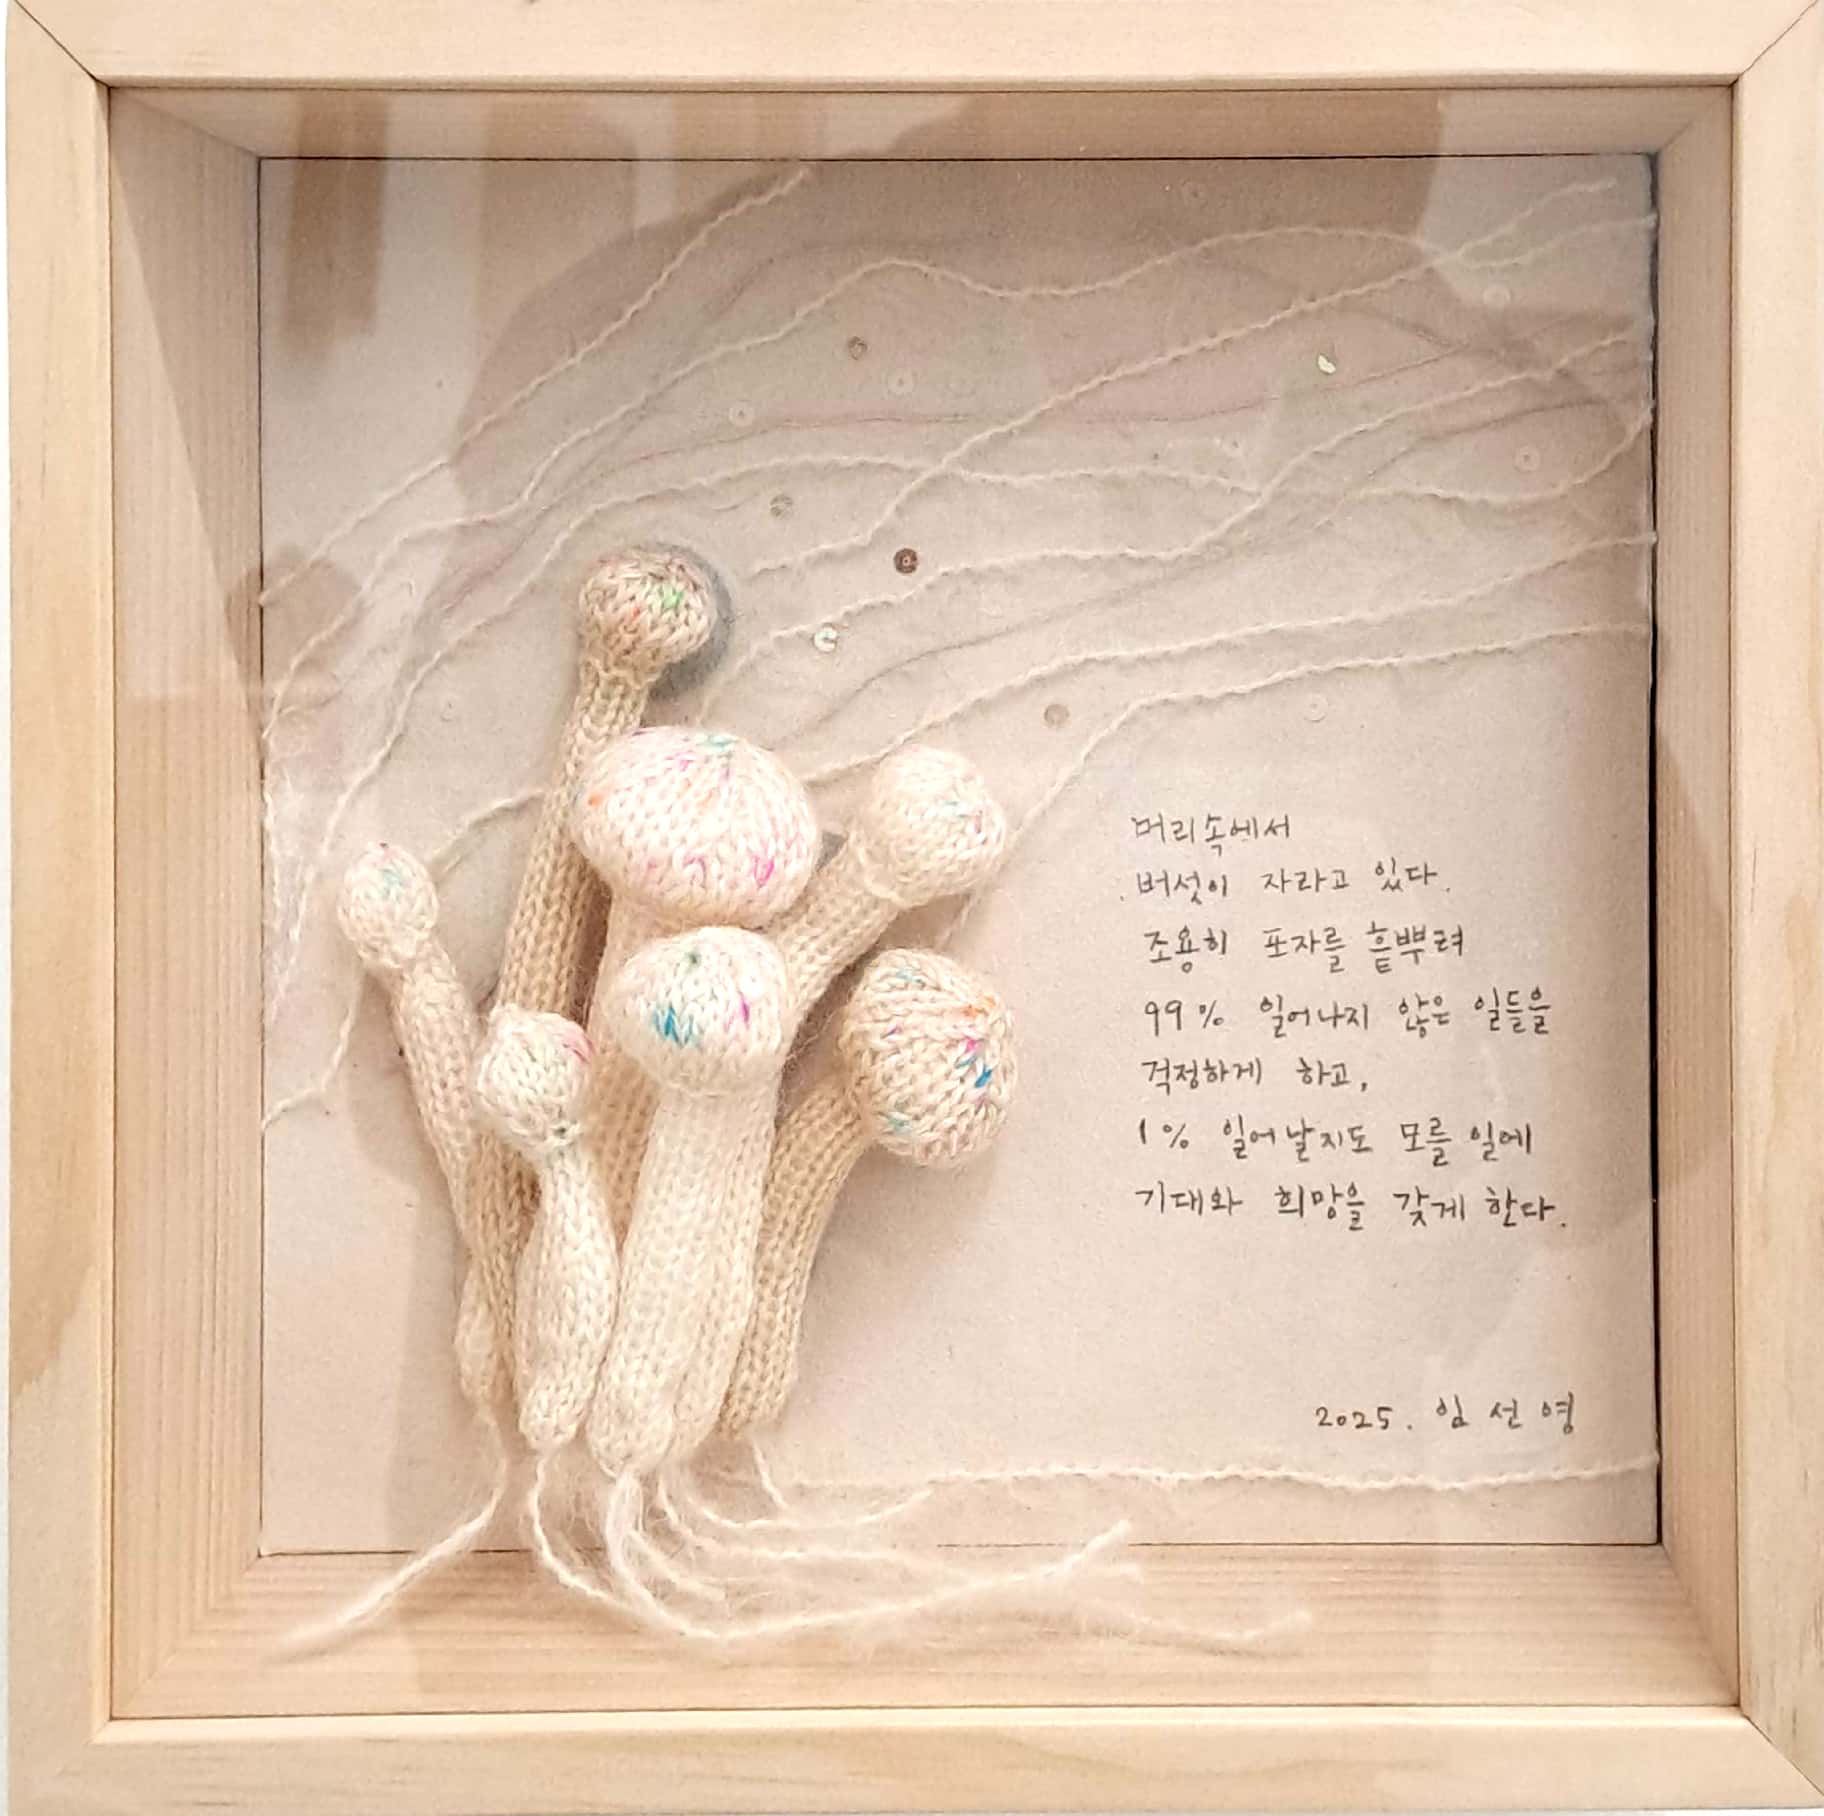 머리속에서
버섯이 자라고 있다.
조용히 포자를 흩뿌려
99% 일어나지 않은 일들을
걱정하게 하고,
1% 일어날지도 모를 일에
기대와 희망을 갖게 한다.
2025. 임선영